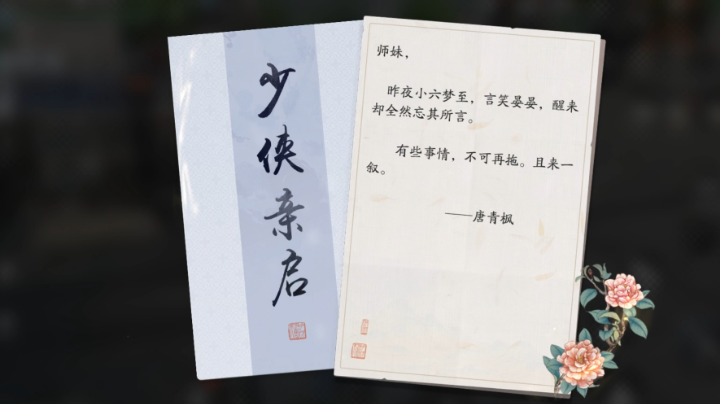 少侠亲启
师妹，
昨夜小六梦至，言笑晏晏，醒来
却全然忘其所言。
有些事情，不可再拖。且来一
叙。
——唐青枫